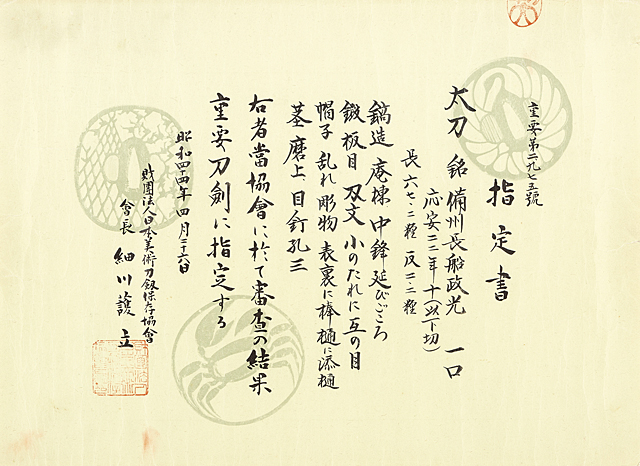 重要第二九七五號
指定書
太刀 銘 備州長船政光 一口
應安三二年十(以下切)
長 六七・二糎 反 二・二糎
鎬造 庵棟 中鋒延びごころ
鍛 板目 刃文 小のたれに互の目
帽子 乱れ 彫物 表裏に棒樋に添樋
茎 磨上、目釘孔三
右者當協會に於て審査の結果
重要刀劍に指定する
昭和四四年四月二十六日
財團法人日本美術刀劔保存協會
會長 細川護立